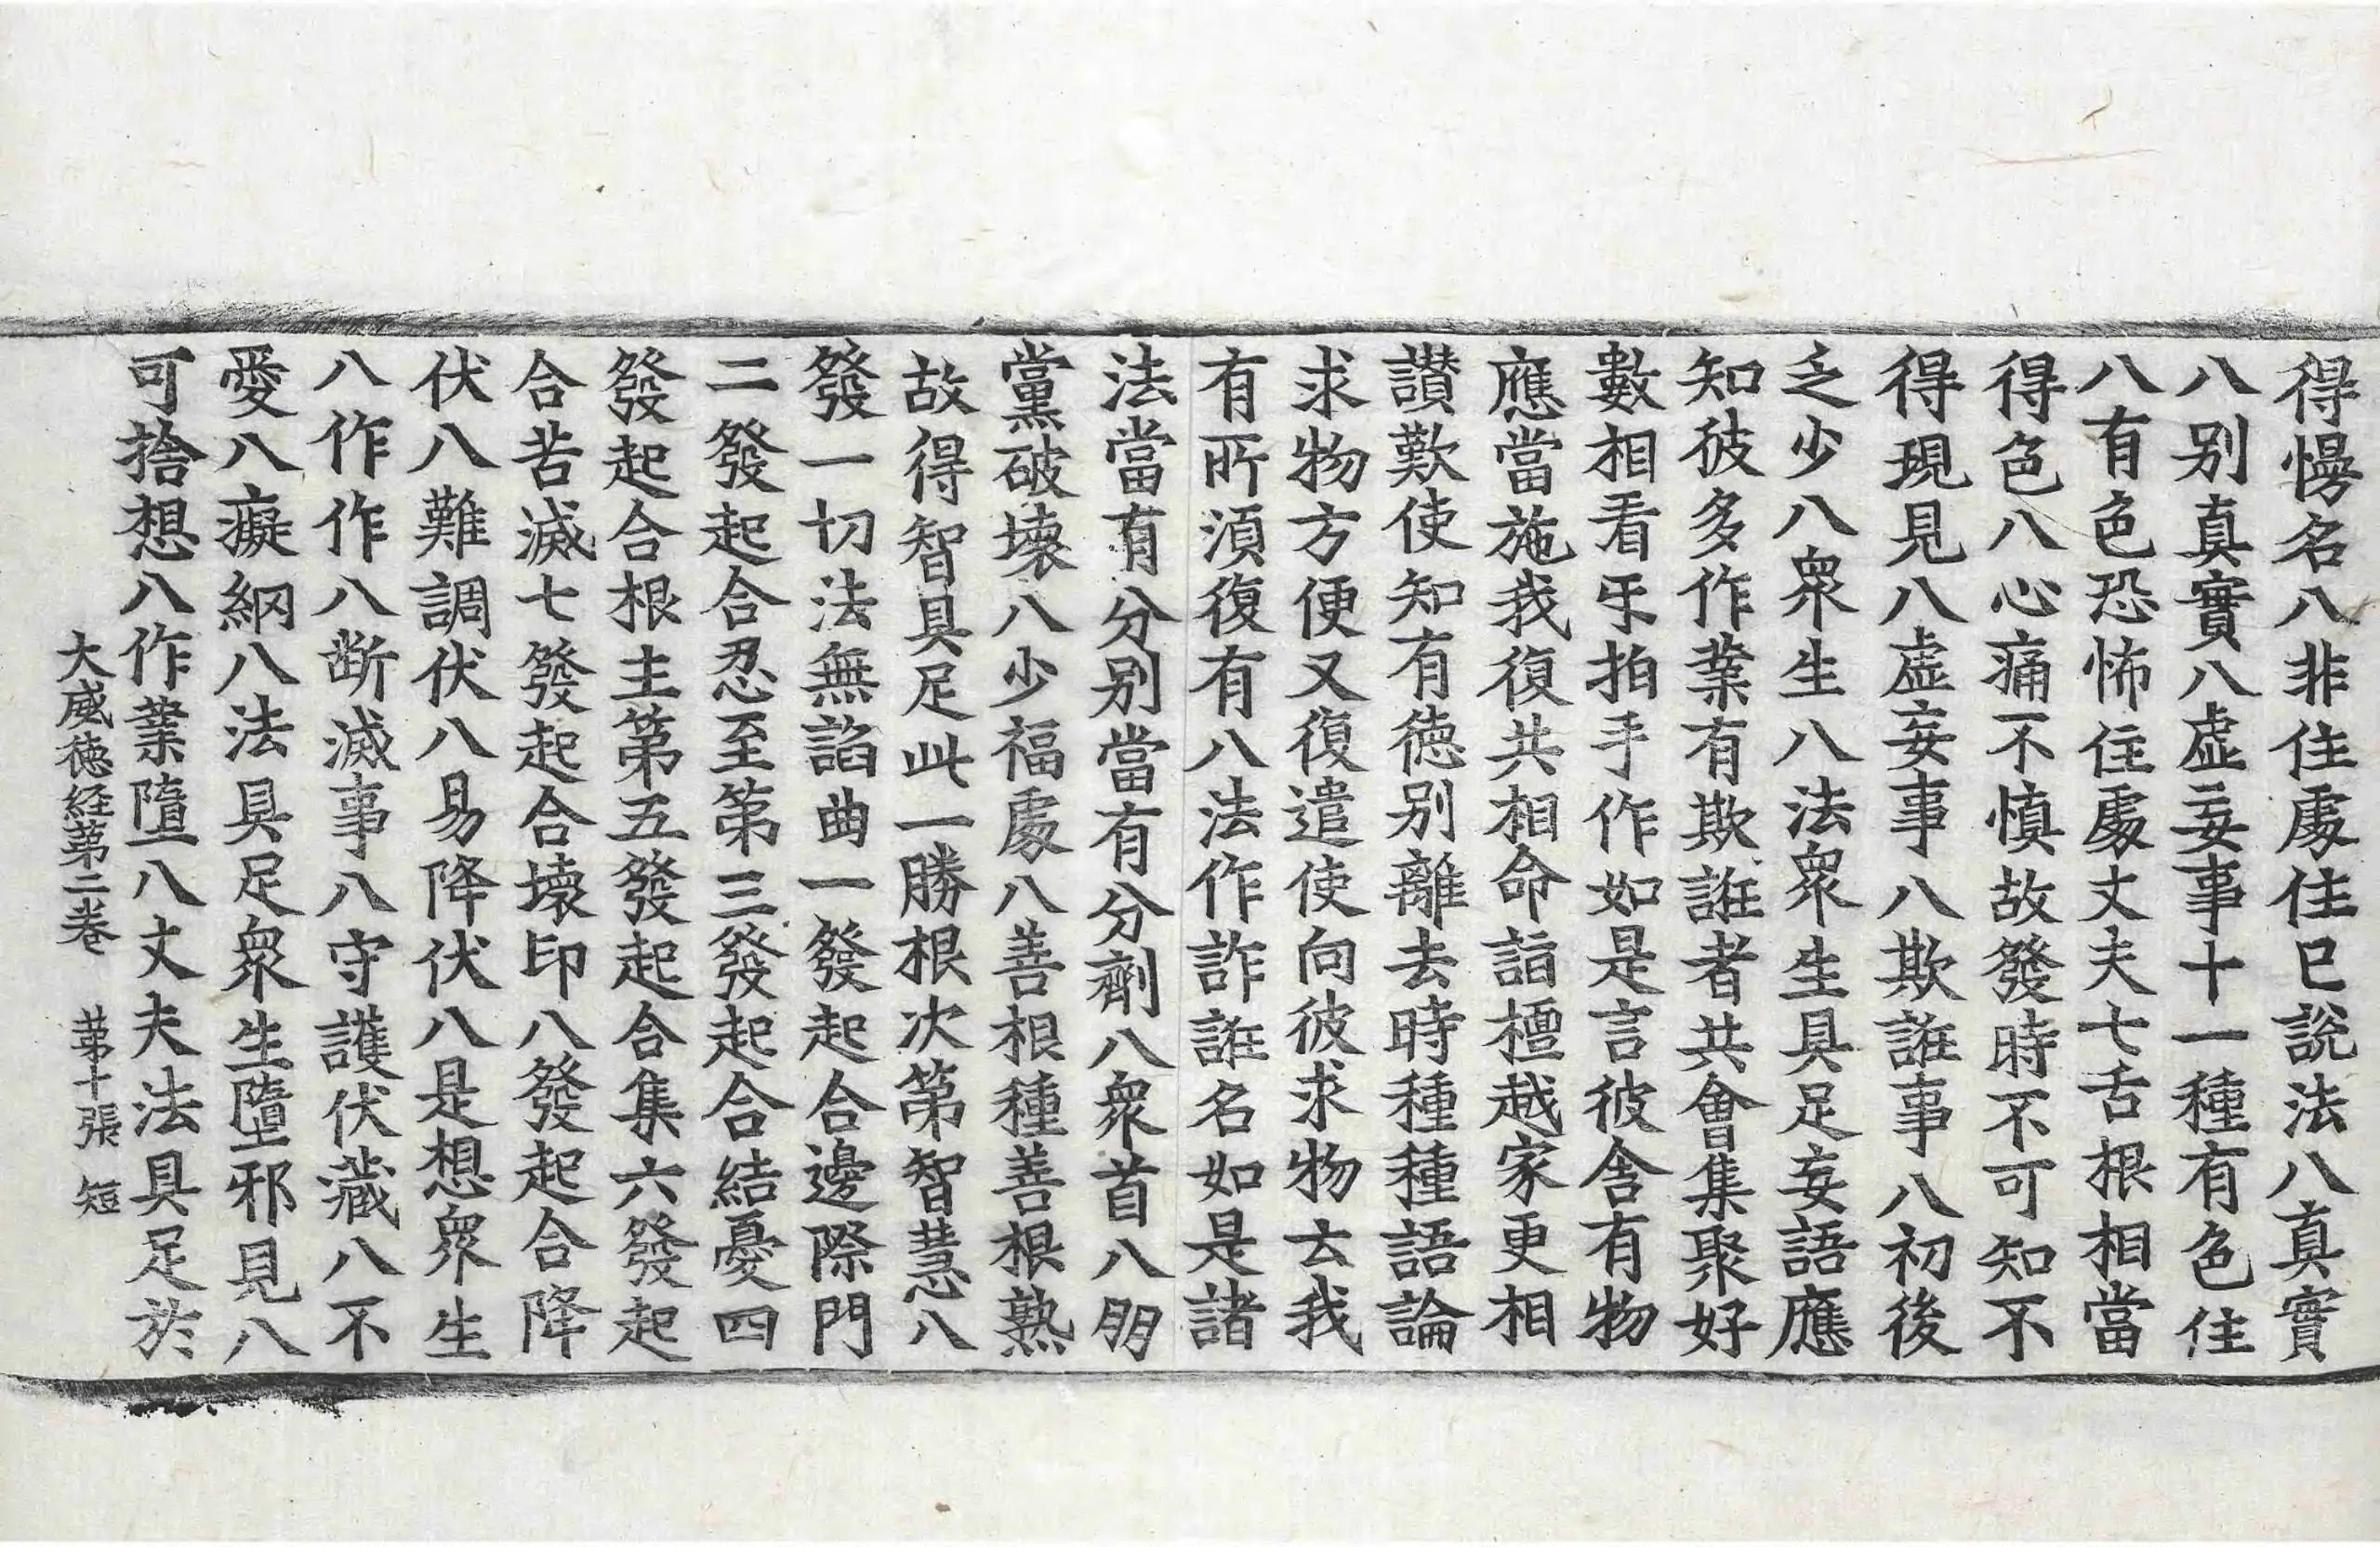 得慢名八非住處住已說法八真實
八別真實八虛妄事十一種有色住
八有色恐怖住處丈夫七舌根相當
得色八心痛不慎故發時不可知不
得現見八虛妄事八欺誑事八初後
乏少八衆生八法衆生具足妄語應
知彼多作業有欺誑者共會集聚好
數相看㸦拍手作如是言彼舍有物
應當施我復共相命詣檀越家更相
讃歎使知有徳別離去時種種語論
求物方便又復遣使向彼求物去我
有所湏復有八法作詐誑名如是諸
法當有分別當有分劑八衆首八朋
黨破壞八少福處八善根種善根熟
故得智具足此一勝根次第智慧八
發一切法無諂曲一發起合邊際門
二發起合忍至第三發起合結憂四
發起合根主第五發起合集六發起
合苦滅七發起合壞印八發起合降
伏八難調伏八易降伏八是想衆生
八作作八断滅事八守護伏藏八不
愛八癡網八法具足衆生墮邪見八
可捨想八作業墮八丈夫法具足於
大威徳経第二卷　第十張　短